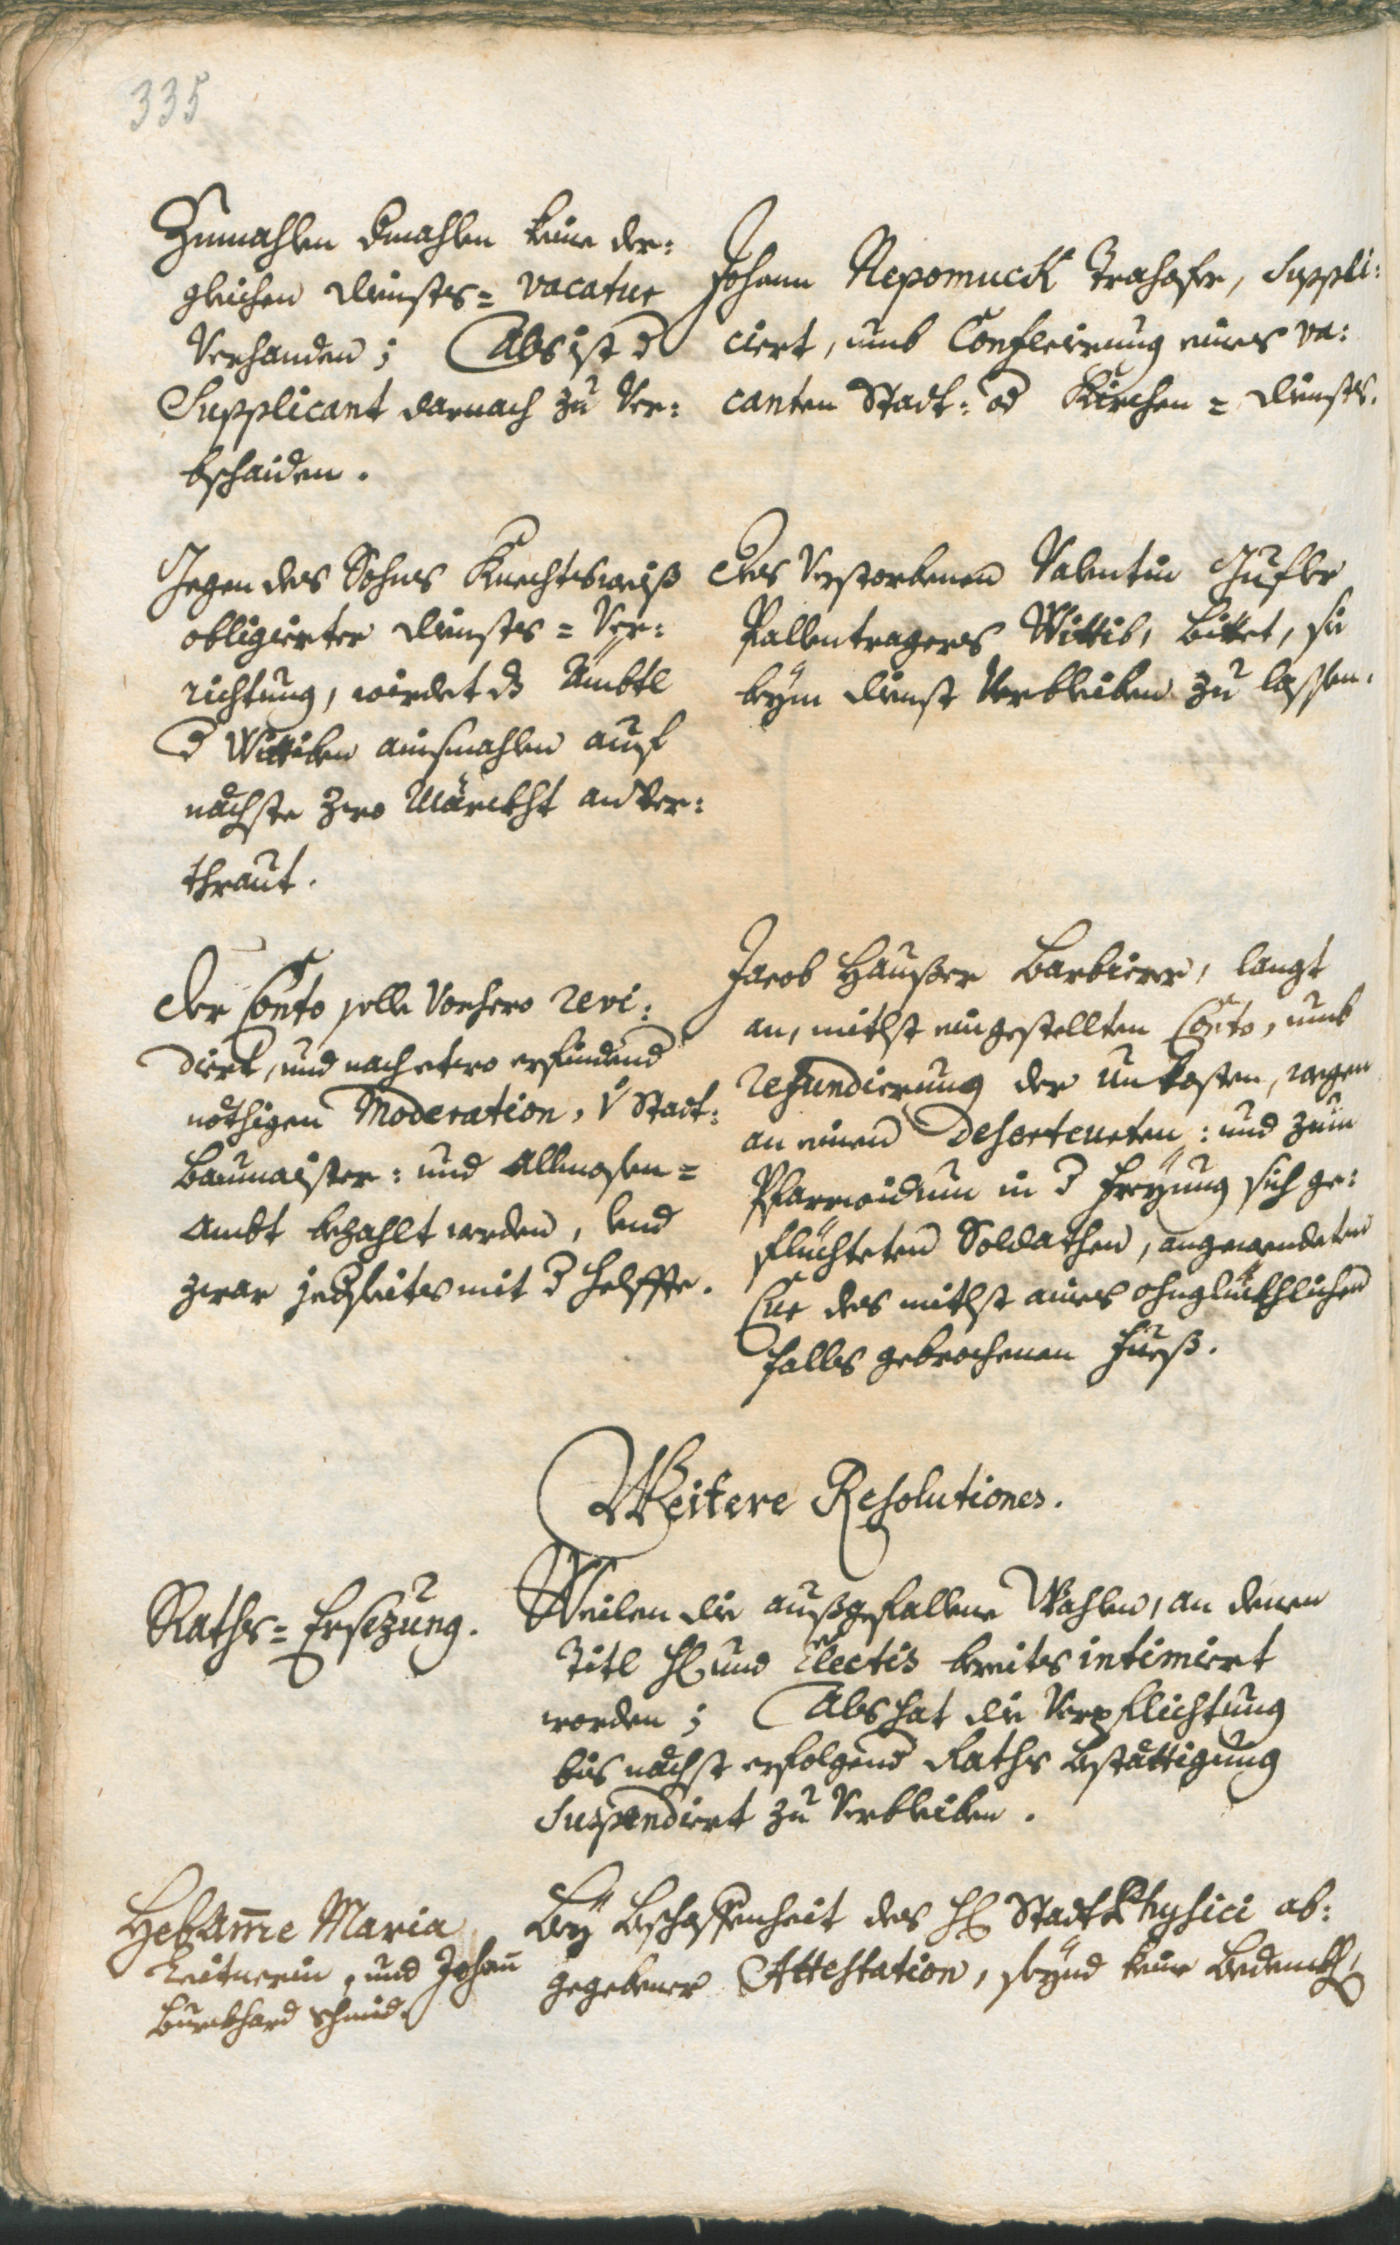 335
Zumahlen dmahlen keine der:
gleichen diensts= vacatur
Verhanden; Als ist d
Supplicant darnach zu Ver:
bschaiden.
Johann Nepomuck Trahofer, Suppli:
ciert, umb Conferirung eines va:
canten Stadt: od Kirchen= diensts.
Gegen des Sohns Knechtsweiß
obligierter diensts= Ver:
richtung, wirdet ds Ambtl
d Wittiben ainsmahlen auf
nächste zwo Märckht anver:
thraut.
Des Verstorbenen Valentin
Pallentragers Wittib, bittet, sie
beÿm dienst Verbleiben zu lassen.
Der Conto solle Vorhero revi:
diert, und nach etwo erfindend
nöthigen Moderation, v Stadt:
Baumaister: und Allmosen=
Ambt bezahlt werden, und
zwar jedseits mit d helffte.
Jacob Haußer Barbierer, langt
an, mitlst eingestellten Conto, umb
refundierung der Unkosten, wegen
an einen Deserteurten: und zum
in d freÿung sich ge:
flüchteten Soldathen, angewendeten
Cur des mitlst aines ohnglückhlichen
falls gebrochenen Fueß.
Weitere Resolutiones.
Raths= Ersezung.
Weilen die außgefallene Wahlen, an denen
Titl H und Electis bereits intimiert
worden; Als hat die Verpflichtung
bis nächst erfolgend Raths bstättigung
suspendiert zu Verbleiben.
HebAme Maria
Leitnerin, und Johan
Burckhard Schmid.
Beÿ bschaffenheit des H Stadt Physici ab:
gegebener Attestation, seÿnd keine bedenckh,